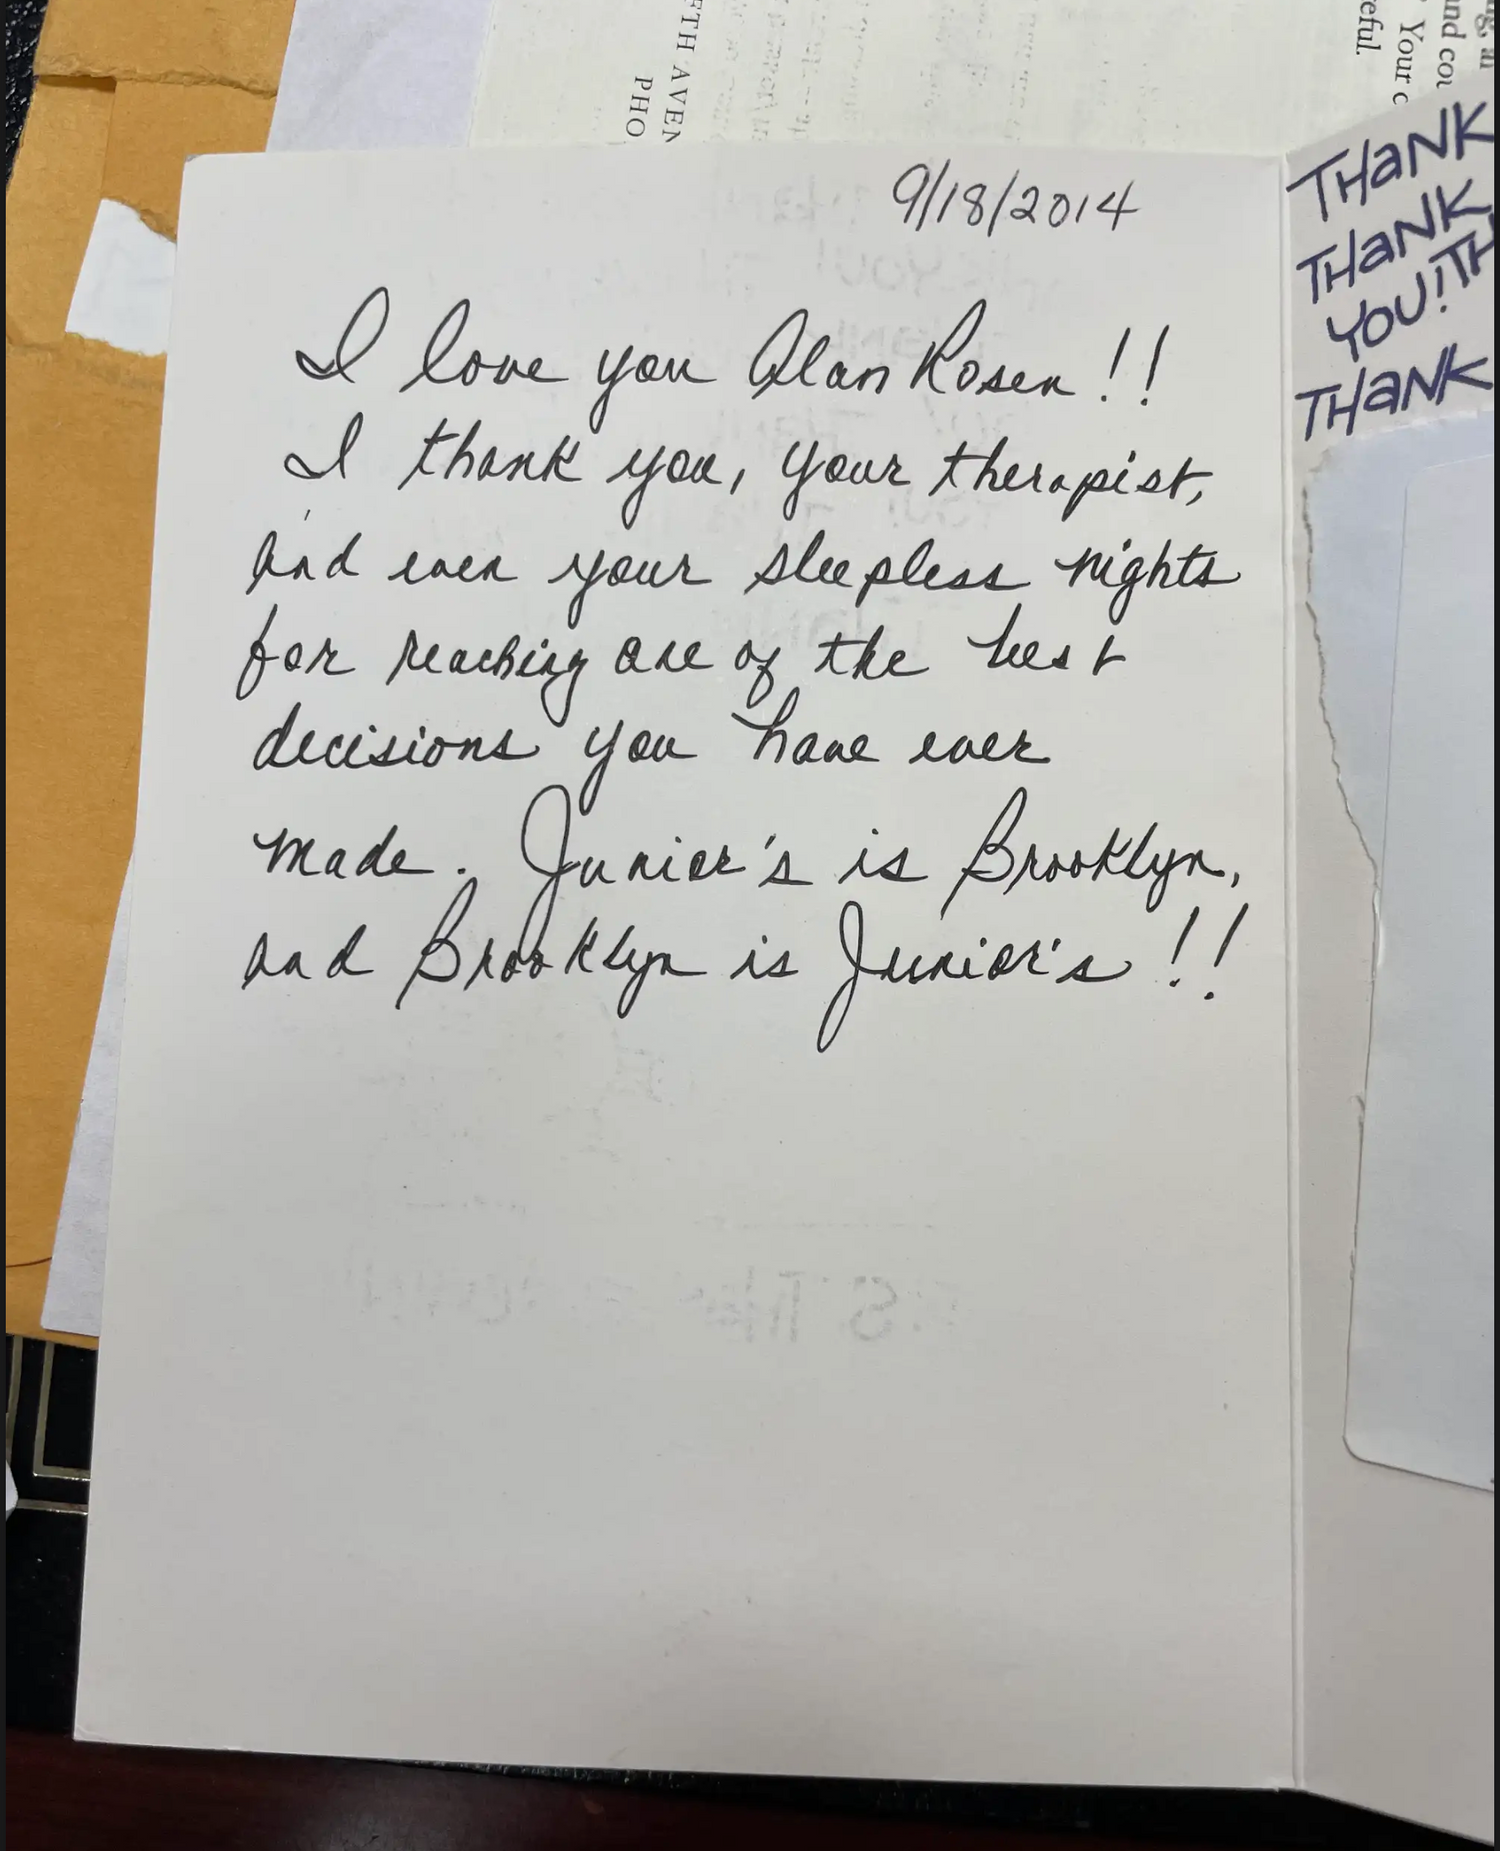 9/18/2014
I love you Alan Rosen!!
I thank you, your therapist,
and even your sleepless nights
for reaching one of the best
decisions you have ever
made. Junior's is Brooklyn,
and Brooklyn is Junior's!!
THANK
THANK
YOU! TH
THANK
AVEN
PHO
and cou
Your c
eful.